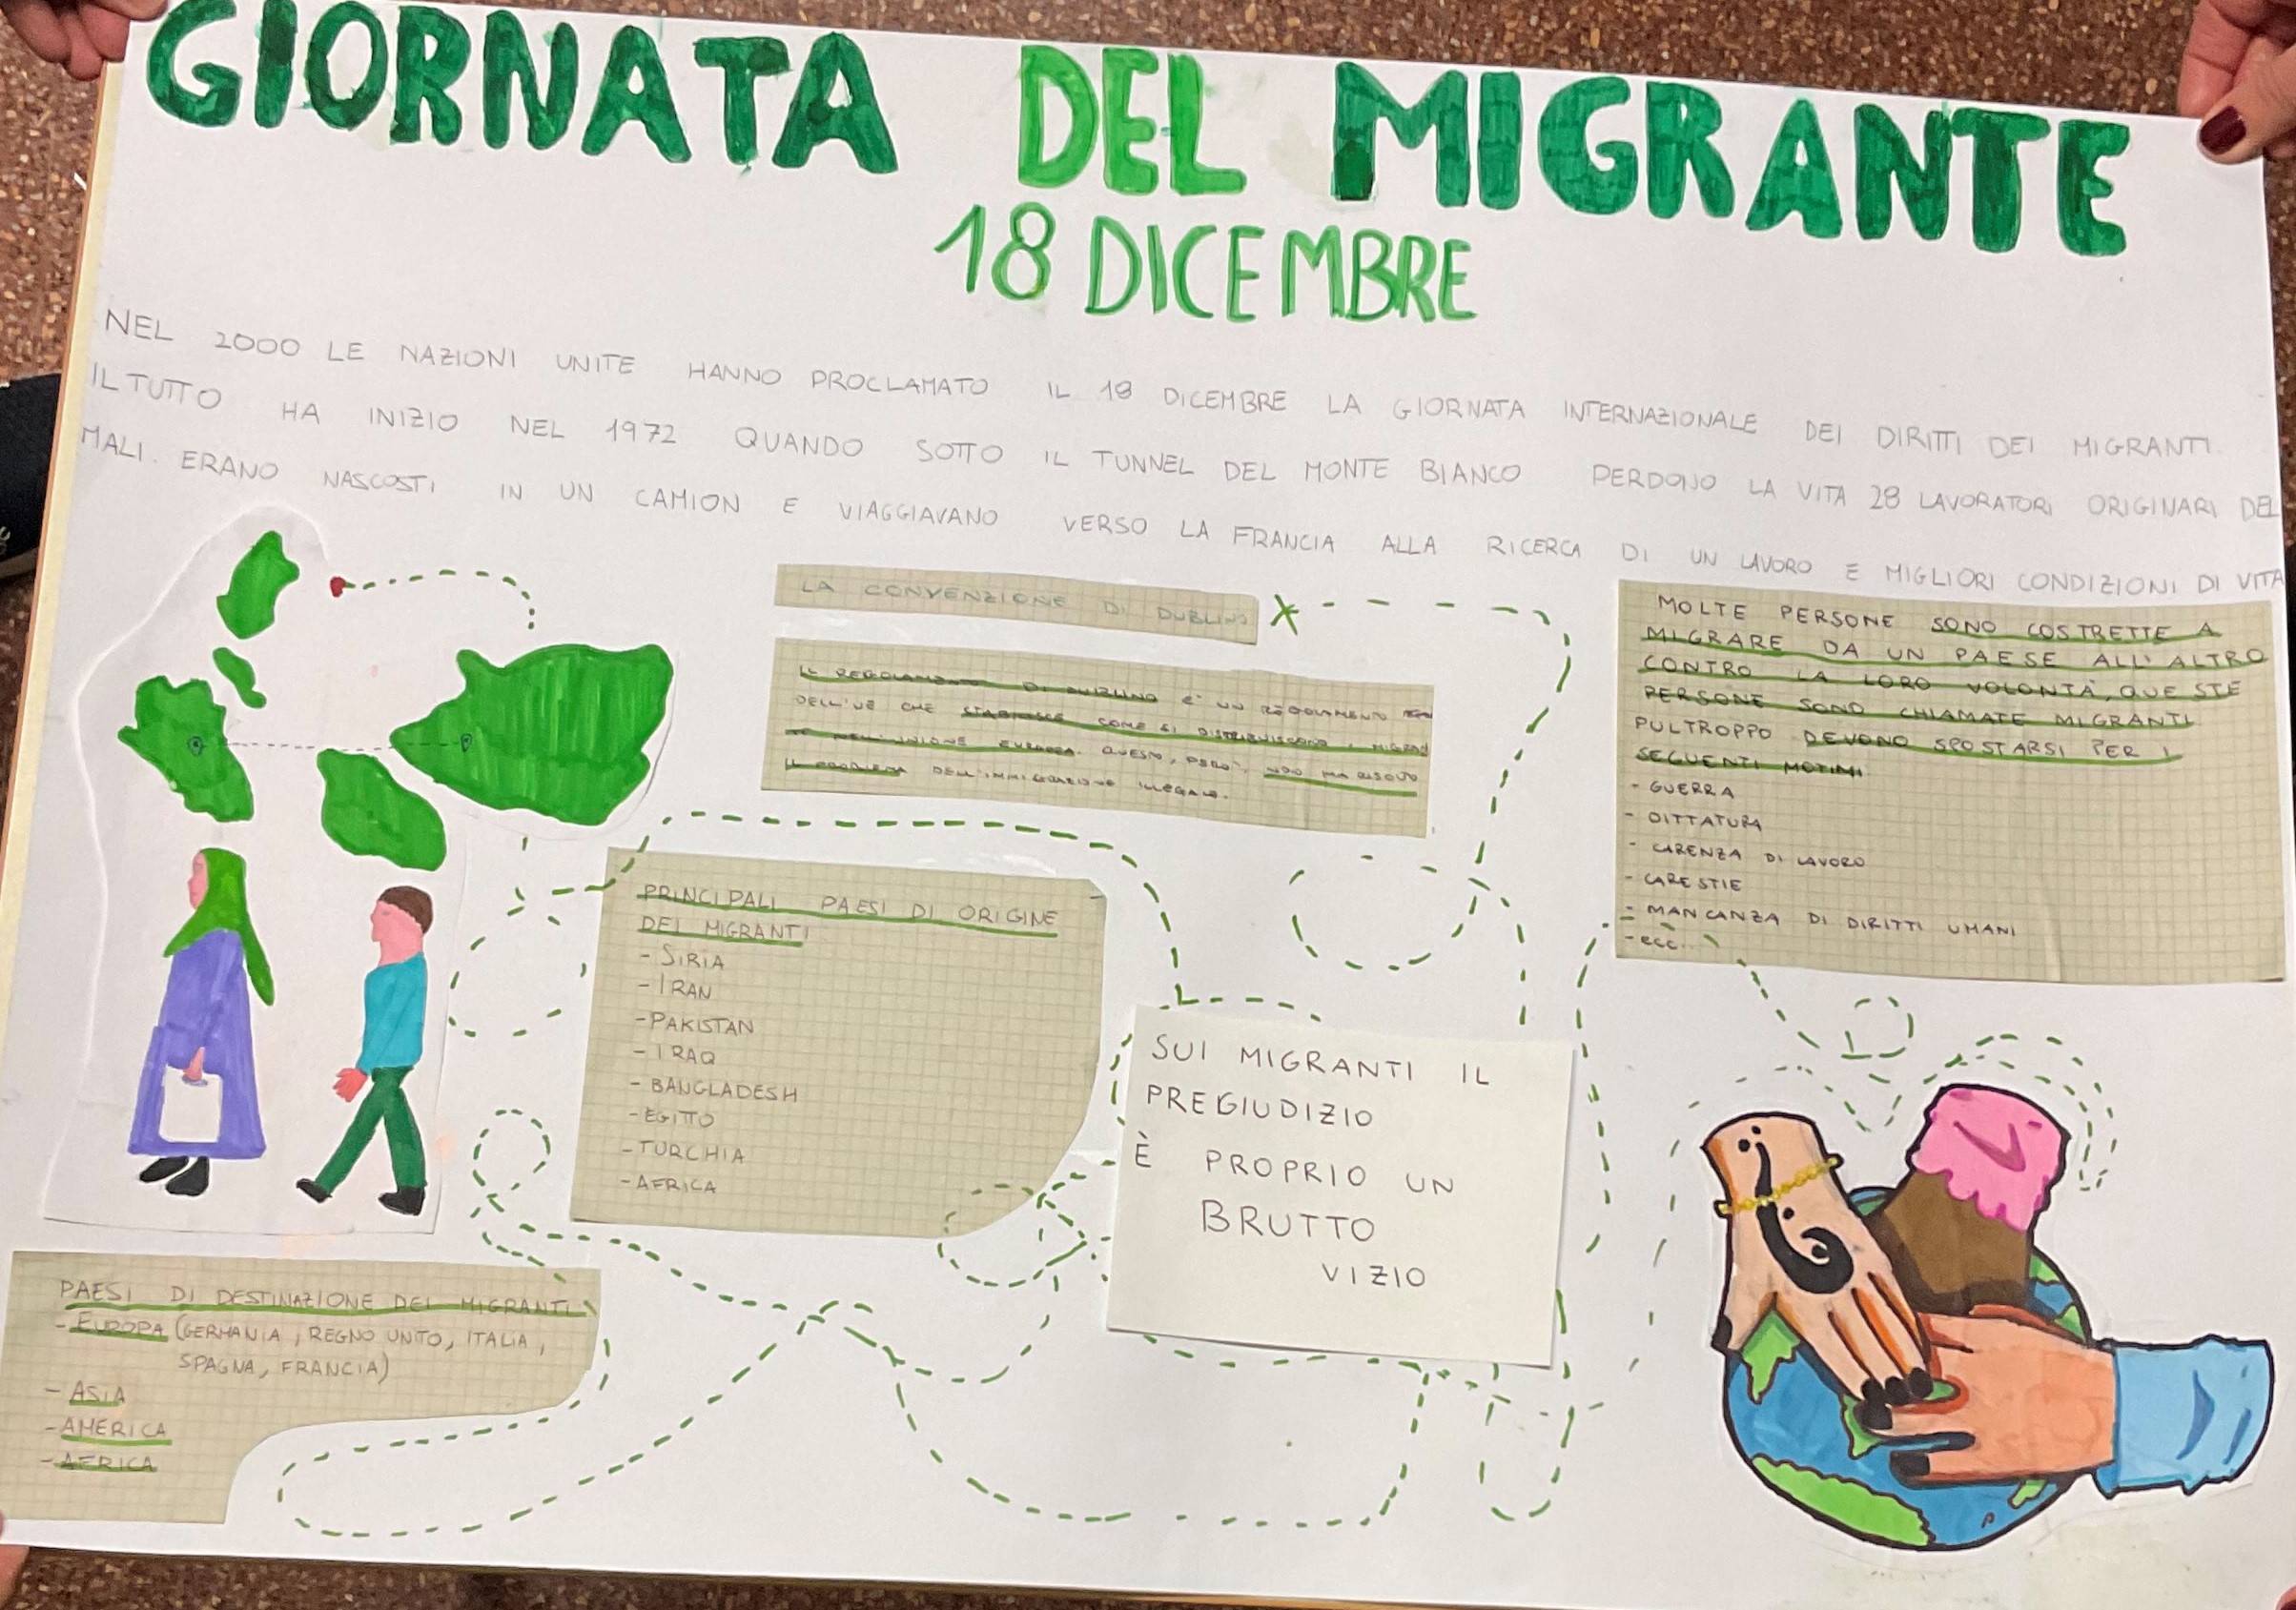 GIORNATA DEL MIGRANTE
18 DICEMBRE
NEL 2000 LE NAZIONI UNITE HANNO PROCLAMATO IL 18 DICEMBRE LA GIORNATA INTERNAZIONALE DEI DIRITTI DEI MIGRANTI.
IL TUTTO HA INIZIO NEL 1972 QUANDO SOTTO IL TUNNEL DEL MONTE BIANCO PERDONO LA VITA 28 LAVORATORI ORIGINARI DEL
MALI. ERANO NASCOSTI IN UN CAMION E VIAGGIAVANO VERSO LA FRANCIA ALLA RICERCA DI UN LAVORO E MIGLIORI CONDIZIONI DI VITA
LA CONVENZIONE DI DUBLINO
IL REGOLAMENTO DI DUBLINO E' UN REGOLAMENTO
DELL'UE CHE STABILISCE COME SI DISTRIBUISCONO I MIGRAN
TI NELL'UNIONE EUROPEA. QUESTO, PERO', NON HA RISOLTO
IL PROBLEMA DELL'IMMIGRAZIONE ILLEGALE.
MOLTE PERSONE SONO COSTRETTE A
MIGRARE DA UN PAESE ALL'ALTRO
CONTRO LA LORO VOLONTÀ, QUESTE
PERSONE SONO CHIAMATE MIGRANTI
PULTROPPO DEVONO SPOSTARSI PER I
SEGUENTI MOTIVI
- GUERRA
- DITTATURA
- CARENZA DI LAVORO
- CARESTIE
- MANCANZA DI DIRITTI UMANI
- ecc..
PRINCIPALI PAESI DI ORIGINE
DEI MIGRANTI
- SIRIA
- IRAN
- PAKISTAN
- IRAQ
- BANGLADESH
- EGITTO
- TURCHIA
- AFRICA
SUI MIGRANTI IL
PREGIUDIZIO
È PROPRIO UN
BRUTTO
VIZIO
PAESI DI DESTINAZIONE DEI MIGRANTI
- EUROPA (GERMANIA, REGNO UNITO, ITALIA,
SPAGNA, FRANCIA)
- ASIA
- AMERICA
- AFRICA